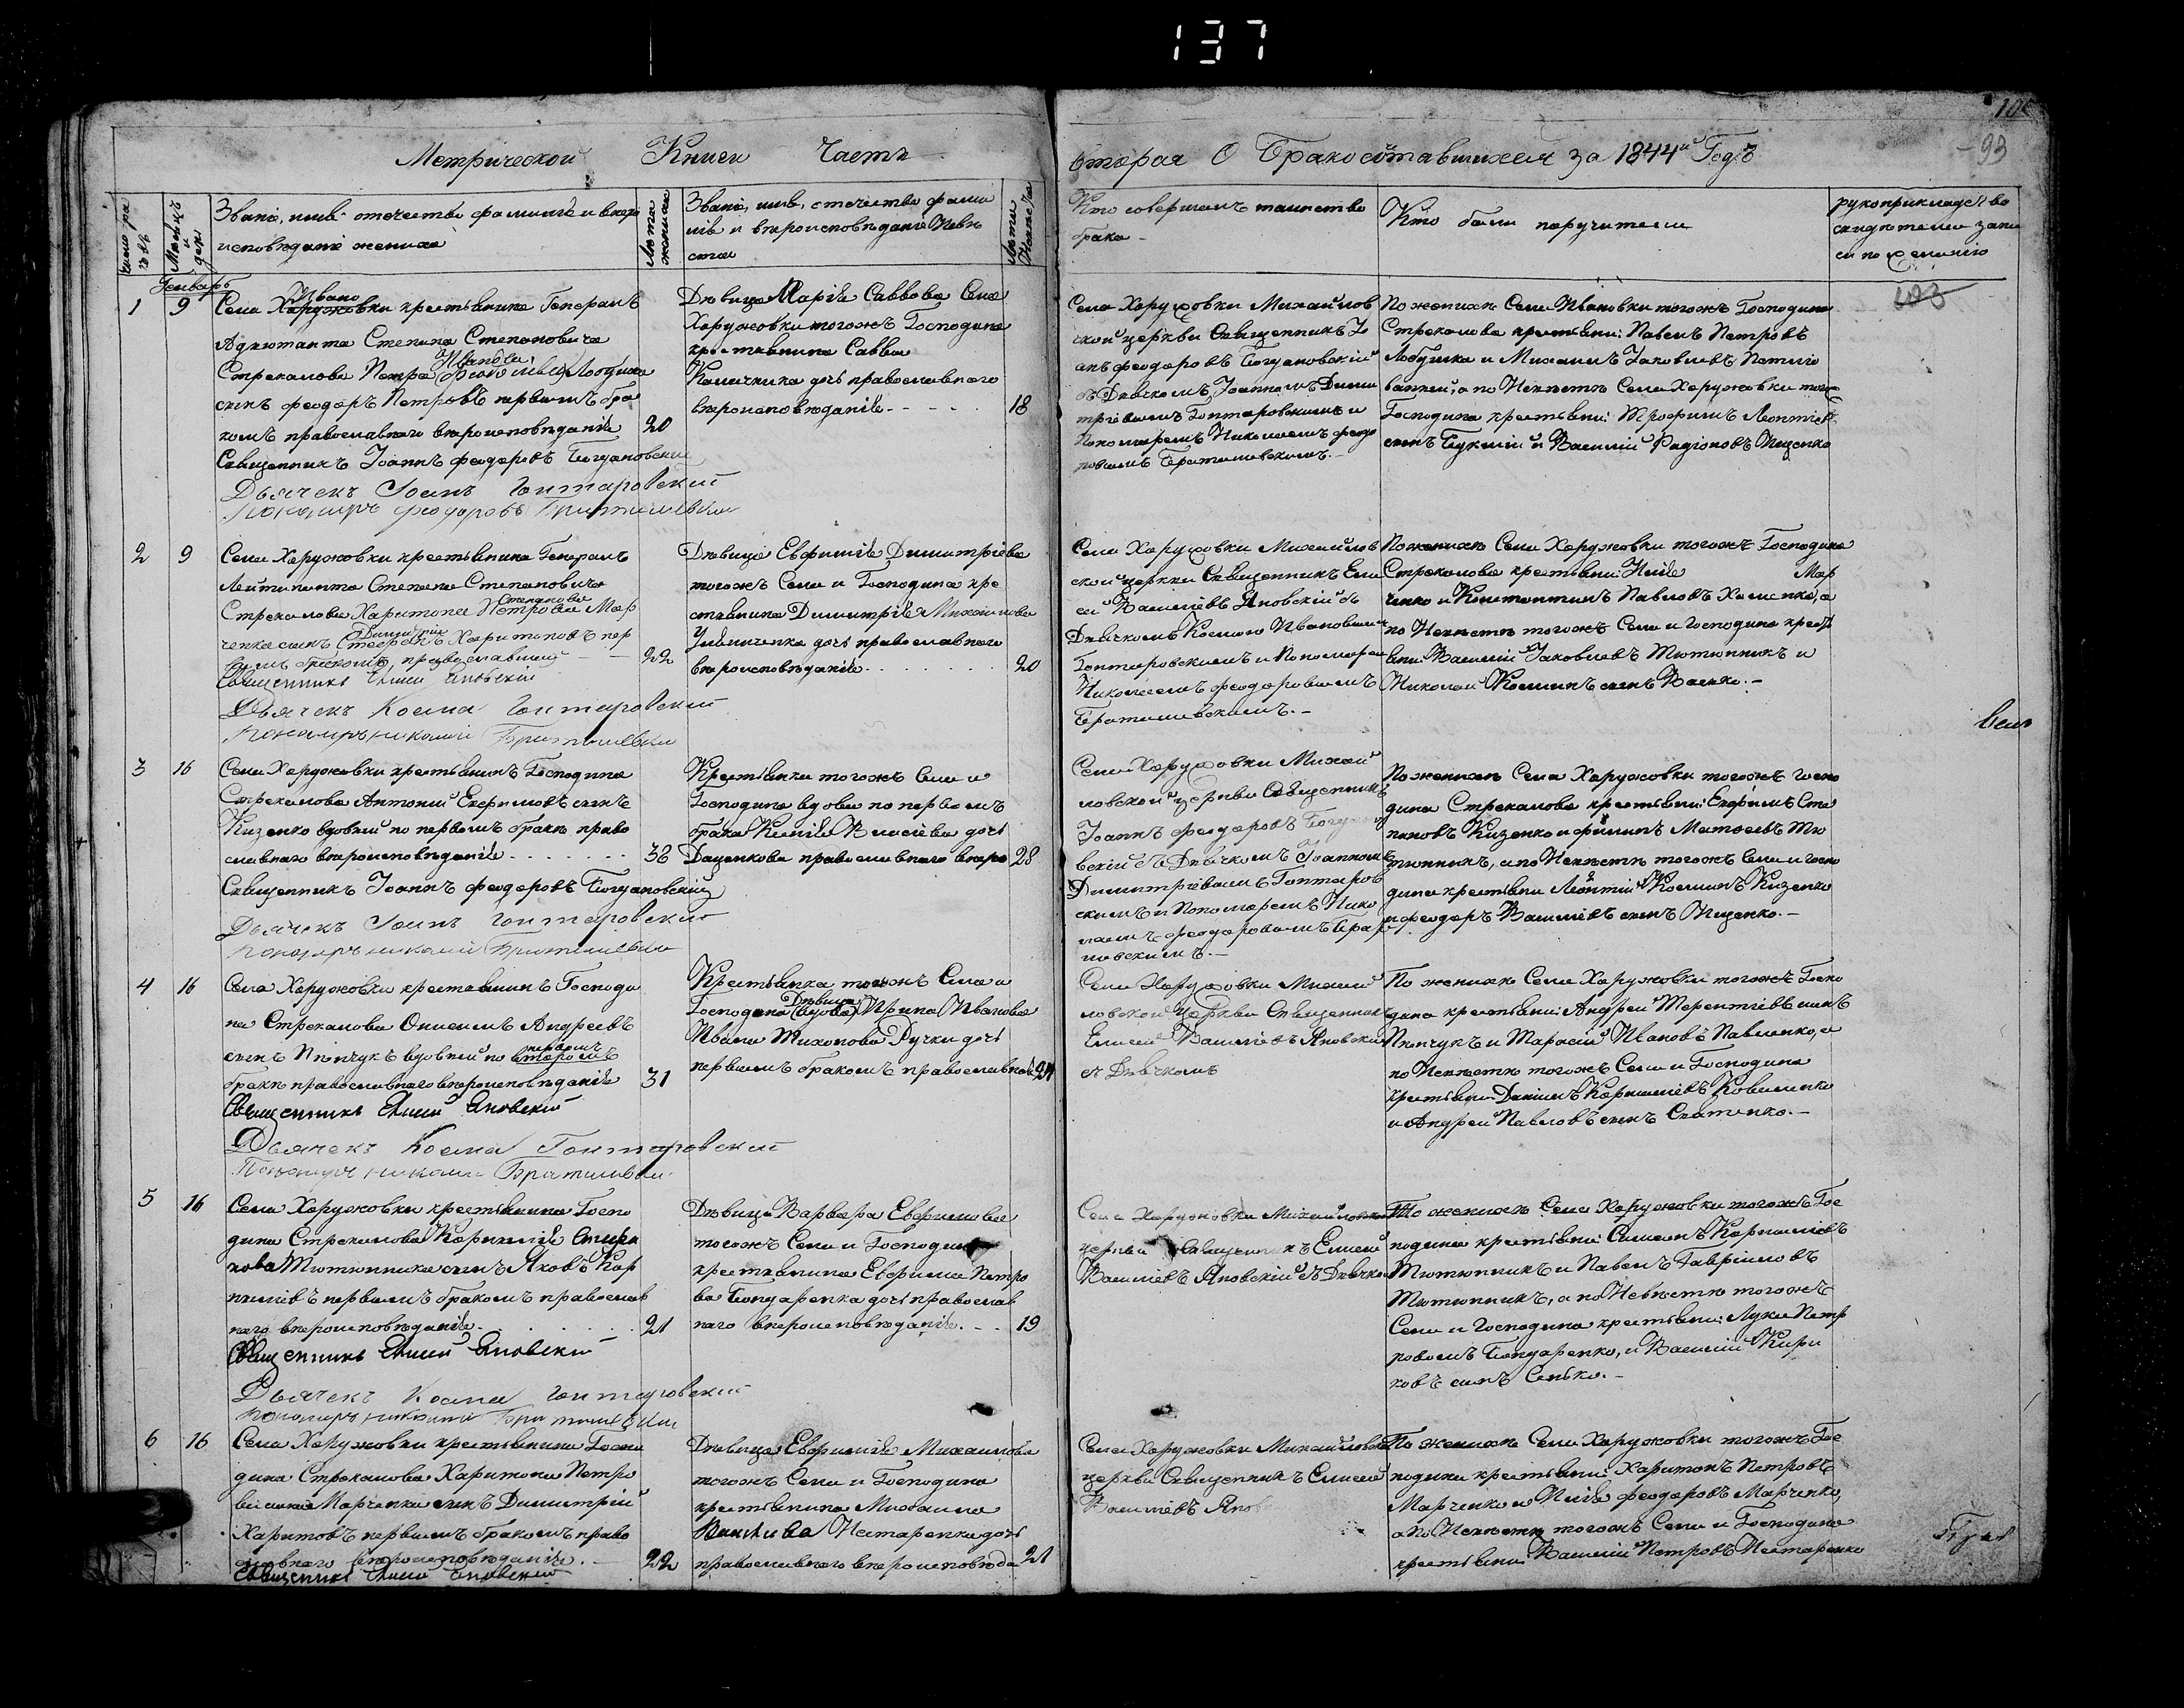 137
Метрической Книги Часть
вторая О Бракосочтавшихся за 1844й Годъ
106
93
Мѣсяцъ и день
Званіе, имя, отечество фамилія и вѣро
исповѣданіе жениха
Лѣта жениха
Званіе, имя, отечество фами
лія и вѣроисповѣданіе Невѣ
сты
Лѣта Невѣсты
Кто совершалъ таинство
брака
Кто были поручители
рукоприкладство
свидѣтелей запи
си по желанію
Генварь
1 9
Ивано
Села Харужовки крестьянина Генералъ
Адютанта Степана Степановича
Стрекалова Петра
сынъ Феодоръ Петровъ первымъ бра
комъ православнаго вѣроисповѣданія 20
Священникъ Іоаннъ Феодоровъ Богдановскій
Дьячекъ Іоанъ Гонтаровскій
Пономаръ
Дѣвица Марія Саввова Села
Харужовки тогожъ Господина
крестьянина Саввы
Калачника дочь православнаго
вѣроисповѣданія 18
Села Харужовки Михайлов
ской церкви Священникъ Іо
анъ Феодоровъ Богдановскій
съ Дьячкомъ Іоанномъ Дими
тріевымъ Гонтаровскимъ и
Пономаремъ Николаемъ Феодо
ровымъ Братишевскимъ.
По женихѣ Села Ивановки тогожъ Господина
Стрекалова крестьяни: Павелъ Петровъ
и Михаилъ Іаковлевъ
а по Невѣстѣ Села Харужовки тогожъ
Господина крестьяни: Трофимъ Леонтіевъ
сынъ и Василій Радіоновъ Ищенко
2 9
Села Харужовки крестьянина Генералъ
Лейтинанта Степана Степановича
Степанова
Стрекалова Харитона Петрова Мар
Димитрій
ченка сынъ Харитоновъ пер
православный 22
Священникъ Елисей Яновскій
Дьячекъ Косма Гонтаровскій
Пономаръ Николай Братишевскій
Дѣвица Евфимія Димитріева
тогожъ Села и Господина кре
стьянина Димитрія Михайлова
дочь православнаго
вѣроисповѣданія 20
Села Харужовки Михайлов
ской церкви Священникъ Ели
сей Василіевъ Яновскій съ
Дьячкомъ Космою Ивановымъ
Гонтаровскимъ и Пономаремъ
Николаемъ Феодоровымъ
Братишевскимъ.
По женихѣ Села Харужовки тогожъ Господина
Стрекалова крестьяни: Илія Мар
ченко и Константинъ Павловъ Хоменко, а
по Невѣстѣ тогожъ Села и Господина кресть
яни: Василій Іаковлевъ Тютюнникъ и
Николай Косминъ сынъ Васько.
3 16
Села Харужовки крестьянинъ Господина
Стрекалова Антоній Евфимовъ сынъ
Кизенко вдовый по первомъ бракѣ право
славнаго вѣроисповѣданія 38
Священникъ Іоаннъ Феодоровъ Богдановскій
Дьячекъ Іоанъ Гонтаровскій
Пономаръ Николай Братишевскій
Крестьянка тогожъ Села и
Господина вдова по первомъ
бракѣ Ксенія Власіева дочь
Даценкова православнаго вѣро 28
Села Харужовки Михай
ловской церкви Священникъ
Іоаннъ Феодоровъ Богдано
вскій съ Дьячкомъ Іоанномъ
Димитріевымъ Гонтаров
скимъ и Пономаремъ Нико
лаемъ Феодоровымъ
По женихѣ Села Харужовки тогожъ Госпо
дина Стрекалова крестьяни: Евфимъ Сте
пановъ Кизенко и Филипъ Матфеевъ Тю
тюнникъ, а по Невѣстѣ тогожъ Села и Госпо
дина крестьяни Леонтій Косминъ Кизенко
и Феодоръ Василіевъ сынъ Ищенко.
4 16
Села Харужовки крестьянинъ Господи
на Стрекалова Онисимъ Андреевъ
первомъ
сынъ Пинчукъ вдовый по второмъ
бракѣ православнаго вѣроисповѣданія 31
Священникъ Елисей Яновскій
Дьячекъ Косма Гонтаровскій
Пономаръ Николай Братишевскій
Крестьянка тогожъ Села и
Дѣвица
Господина (вдова) Ирина Иванова
Ивана Тихонова Дучки дочь
первымъ бракомъ православной 24
Села Харужовки Михай
ловской церкви Священникъ
Елисей Василіевъ Яновскій
съ Дьячкомъ
По женихѣ Села Харужовки тогожъ Госпо
дина крестьяни: Андрей Терентіевъ сынъ
Пинчукъ и Тарасій Ивановъ Павленко, а
по Невѣстѣ тогожъ Села и Господина
крестьяни: Даніилъ Корниліевъ Коваленко
и Андрей Павловъ сынъ
5 16
Села Харужовки крестьянина Госпо
дина Стрекалова Корнилія Спири
нова Тютюнника сынъ Яковъ Кор
ниліевъ первымъ бракомъ православ
наго вѣроисповѣданія 21
Священникъ Елисей Яновскій
Дьячекъ Косма Гонтаровскій
Пономаръ Николай Братишевскій
Дѣвица Варвара Евфимова
тогожъ Села и Господина
крестьянина Евфима Петро
ва Бондаренка дочь православ
наго вѣроисповѣданія 19
Села Харужовки Михайловской
церкви Священникъ Елисей
Василіевъ Яновскій съ Дьячком
По женихѣ Села Харужовки тогожъ Гос
подина крестьяни: Симеонъ Корниліевъ
Тютюнникъ и Павелъ Гавріиловъ
Тютюнникъ, а по Невѣстѣ тогожъ
Села и Господина крестьяни: Лука Пет
ровымъ Бондаренко, и Василій Кири
ковъ сынъ Сенько.
6 16
Села Харужовки крестьянина Госпо
дина Стрекалова Харитона Петро
ва Марченка сынъ Димитрій
Харитовъ первымъ бракомъ право
славнаго вѣроисповѣданія 22
Священникъ Елисей Яновскій
Дѣвица Евфимія Михаилова
тогожъ Села и Господина
крестьянина Михаила
Нестаренка дочь
православнаго вѣроисповѣда 21
Села Харужовки Михайловской
церкви Священникъ Елисей
Василіевъ Янов
По женихѣ Села Харужовки тогожъ Гос
подина крестьяни: Харитонъ Петровъ
Марченко и Илія Феодоровъ Марченко,
а по Невѣстѣ тогожъ Села и Господина
крестьяни: Василій Петровъ Нестаренко